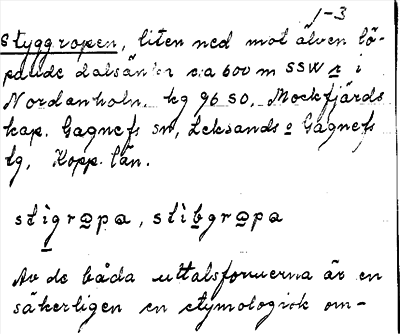 1-3
Styggropen, liten ned mot älven lö-
pande dalsänka c:a 600 m SSW r i
Nordanholn, kg 96 SO, Mockfjärds
kap. Gagnefs sn, Leksands o Gagnefs
tg, Kopp. län.
stigropa, stibgropa
Av de båda uttalsformerna är en
säkerligen en etymologisk om-